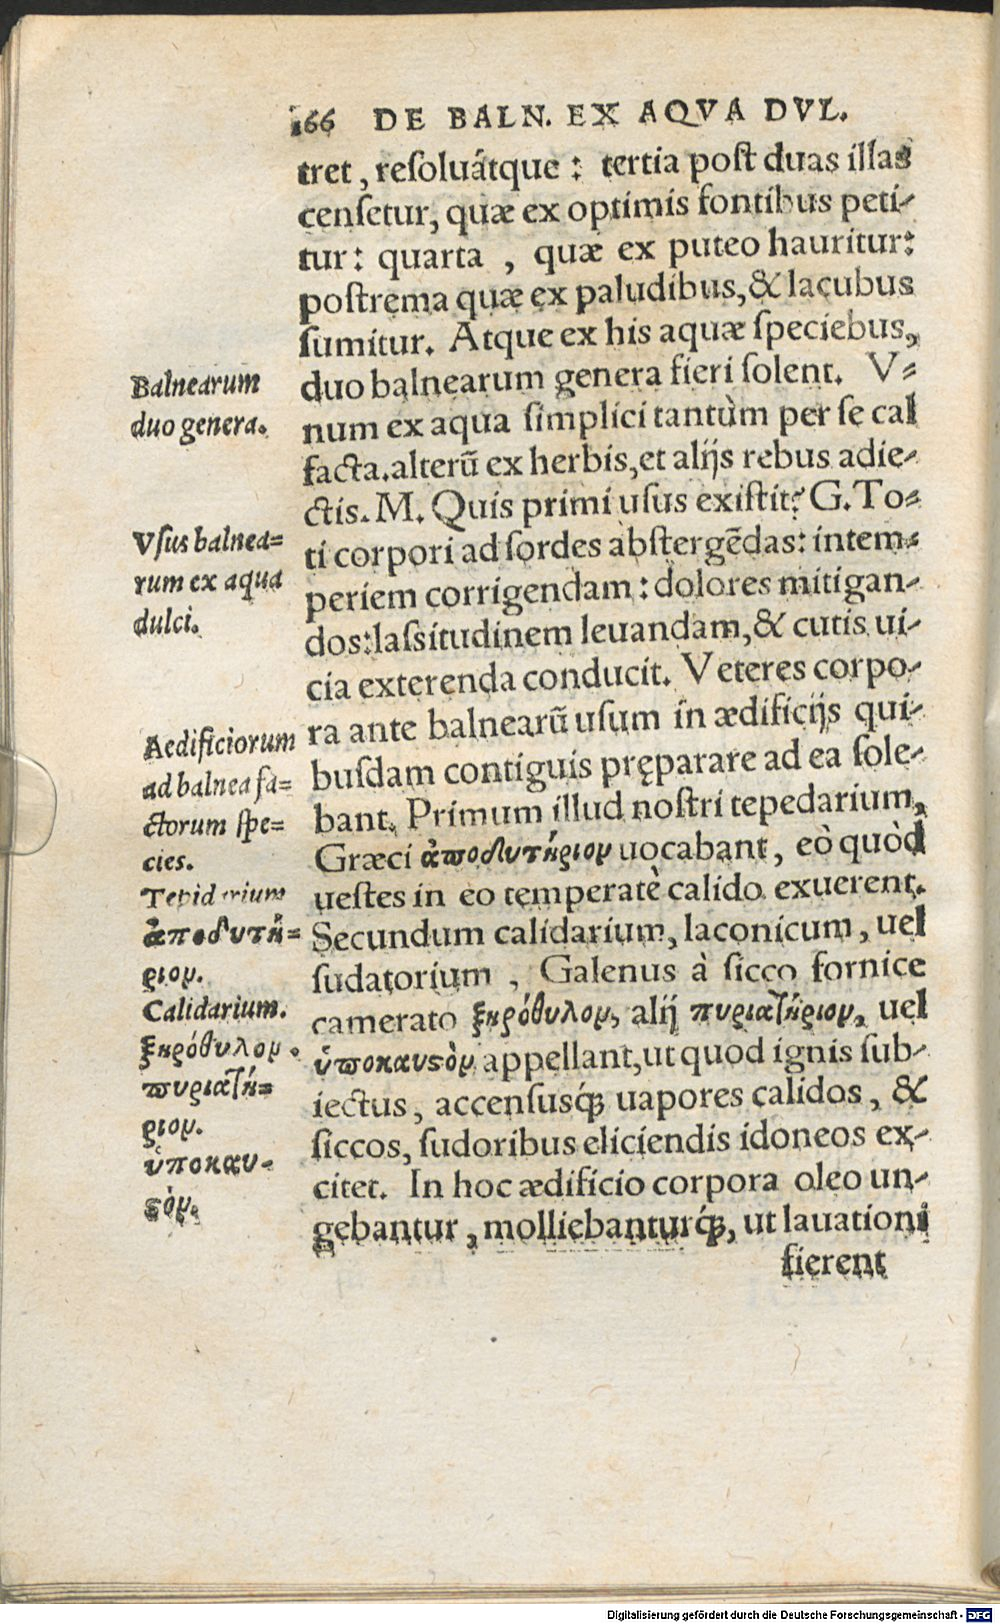 166 DE BALN. EX AQVA DVL.
tret, resoluátque: tertia post duas illas
censetur, quæ ex optimis fontibus peti-
tur: quarta, quæ ex puteo hauritur:
postrema quæ ex paludibus, & lacubus
sumitur. Atque ex his aquæ speciebus,
duo balnearum genera fieri solent. V-
num ex aqua simplici tantùm per se cal
facta. alterũ ex herbis, et alijs rebus adie-
ctis. M. Quis primi usus existit? G. To-
ti corpori ad sordes abstergẽdas: intem-
periem corrigendam: dolores mitigan-
dos: lassitudinem leuandam, & cutis ui-
cia exterenda conducit. Veteres corpo-
ra ante balnearũ usum in ædificijs qui-
busdam contiguis pręparare ad ea sole-
bant. Primum illud nostri tepedarium,
Græci ἀποδυτήριον uocabant, eò quòd
uestes in eo temperatè calido exuerent.
Secundum calidarium, laconicum, uel
sudatorium, Galenus à sicco fornice
camerato ξηρόθυλον, alij πυριατήριον, uel
ὑποκαυστὸν appellant, ut quod ignis sub-
iectus, accensusq́; uapores calidos, &
siccos, sudoribus eliciendis idoneos ex-
citet. In hoc ædificio corpora oleo un-
gebantur, molliebanturq́;, ut lauationi
fierent
Balnearum
duo genera.
Vsus balnea=
rum ex aqua
dulci.
Aedificiorum
ad balnea fa=
ctorum spe=
cies.
Tepidarium
ἀποδυτή=
ριον.
Calidarium.
ξηρόθυλον.
πυριατή=
ριον.
ὑποκαυ-
στὸν.
Digitalisierung gefördert durch die Deutsche Forschungsgemeinschaft - DFG